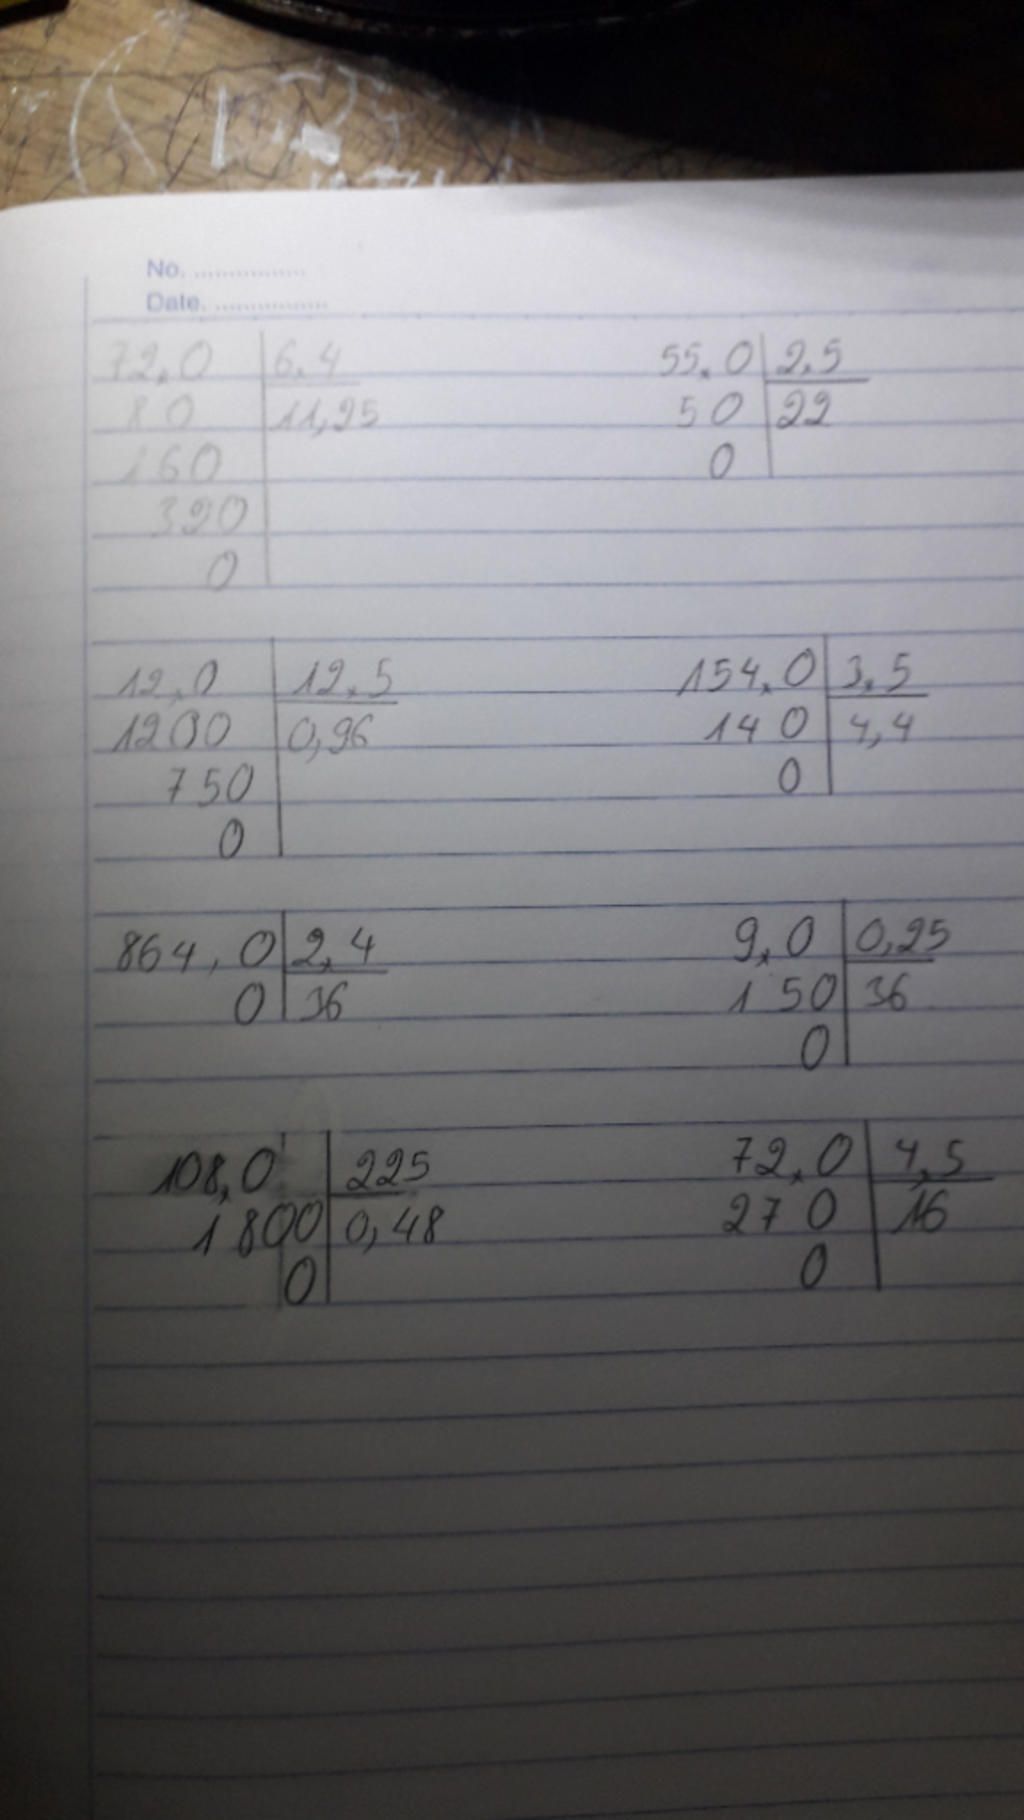 No. ................
Date. ................
72,0 6,4
80 11,25
160
320
0
55,0 2,5
50 22
0
12,0 12,5
1200 0,96
750
0
154,0 3,5
140 4,4
0
864,0 2,4
0 36
9,0 0,25
150 36
0
108,0 225
1800 0,48
0
72,0 4,5
270 16
0